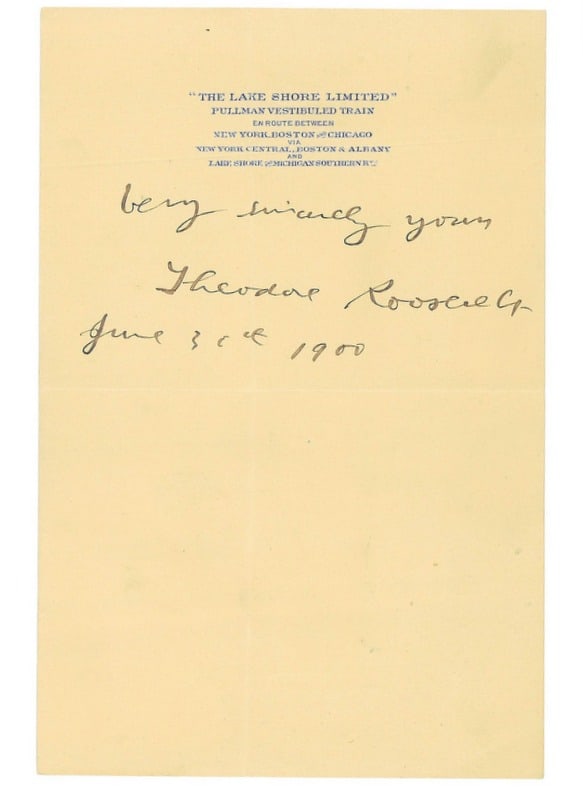 "THE LAKE SHORE LIMITED"
PULLMAN VESTIBULED TRAIN
EN ROUTE BETWEEN
NEW YORK, BOSTON AND CHICAGO
VIA
NEW YORK CENTRAL, BOSTON & ALBANY
AND
LAKE SHORE AND MICHIGAN SOUTHERN RY.
Very sincerely yours
Theodore Roosevelt
June 30th 1900